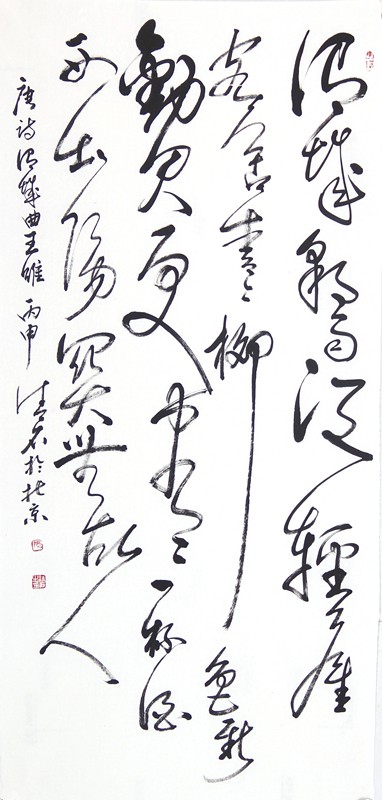 渭城朝雨浥輕塵
客舍青々柳色新
勸君更盡一杯酒
西出陽關無故人
唐詩渭城曲王維 丙申 於北京